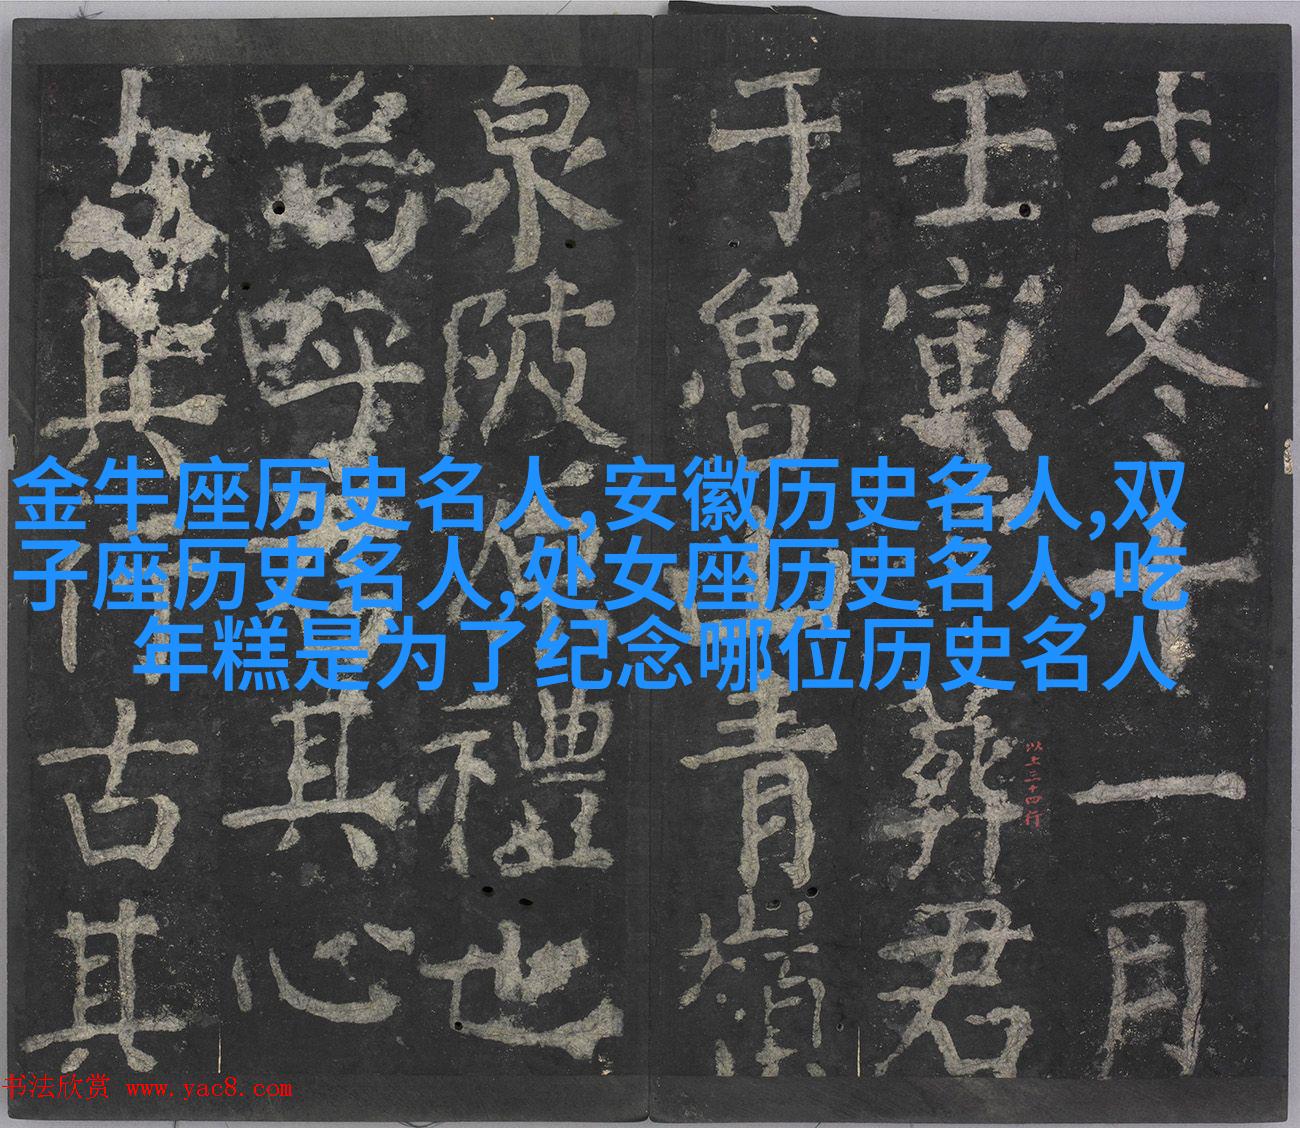 年冬十一月
壬寅
葬君
于魯山青嶺
泉陂
禮也
嗚呼
其心
其
古其
以上三十四行
金牛座历史名人,安徽历史名人,双
子座历史名人,处女座历史名人,吃
年糕是为了纪念哪位历史名人
书法欣赏 www.yac8.com